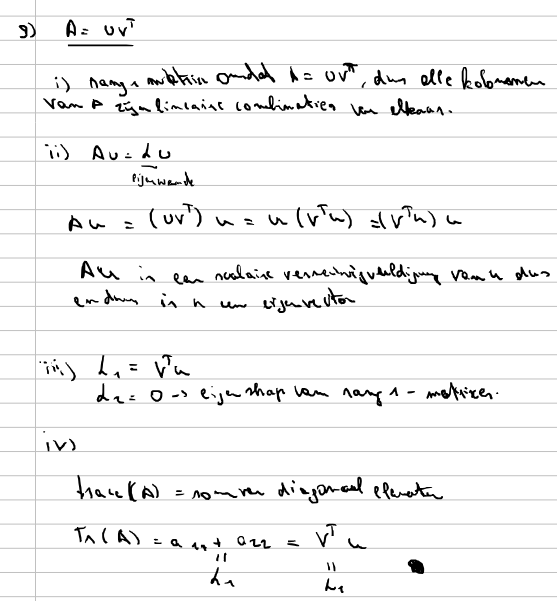 9) A = uvᵀ
i) rang 1 matrix omdat A = uvᵀ, dus alle kolommen
van A zijn lineaire combinaties van elkaar.
ii) Au = λ u
eigenwaarde
Au = (uvᵀ) u = u (vᵀu) = (vᵀu) u
Au is een scalaire vermenigvuldiging van u dus
en dus is u een eigenvector
iii) λ₁ = vᵀu
λ₂ = 0 -> eigenschap van rang 1 - matrixen.
iv)
trace(A) = som van diagonaal elementen
Tr(A) = a₁₁ + a₂₂ = vᵀ u
= =
λ₁ λ₁